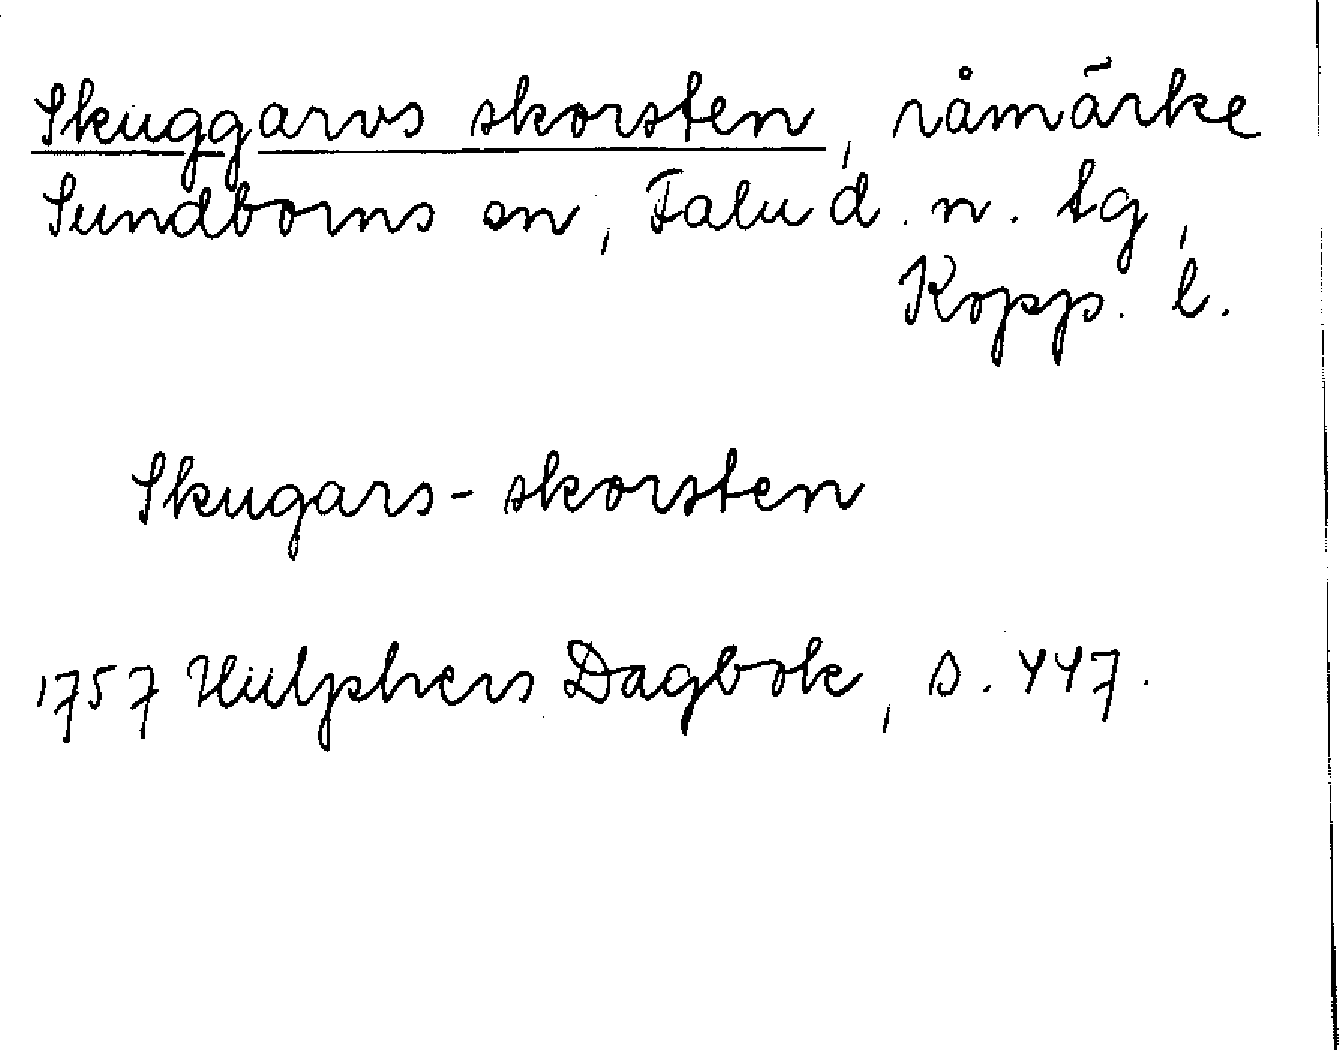 Skuggarvs skorsten, råmärke
Sundborns sn, Falu d. n. tg,
Kopp. l.
Skugars-skorsten
1757 Hülphers Dagbok, s. 447.